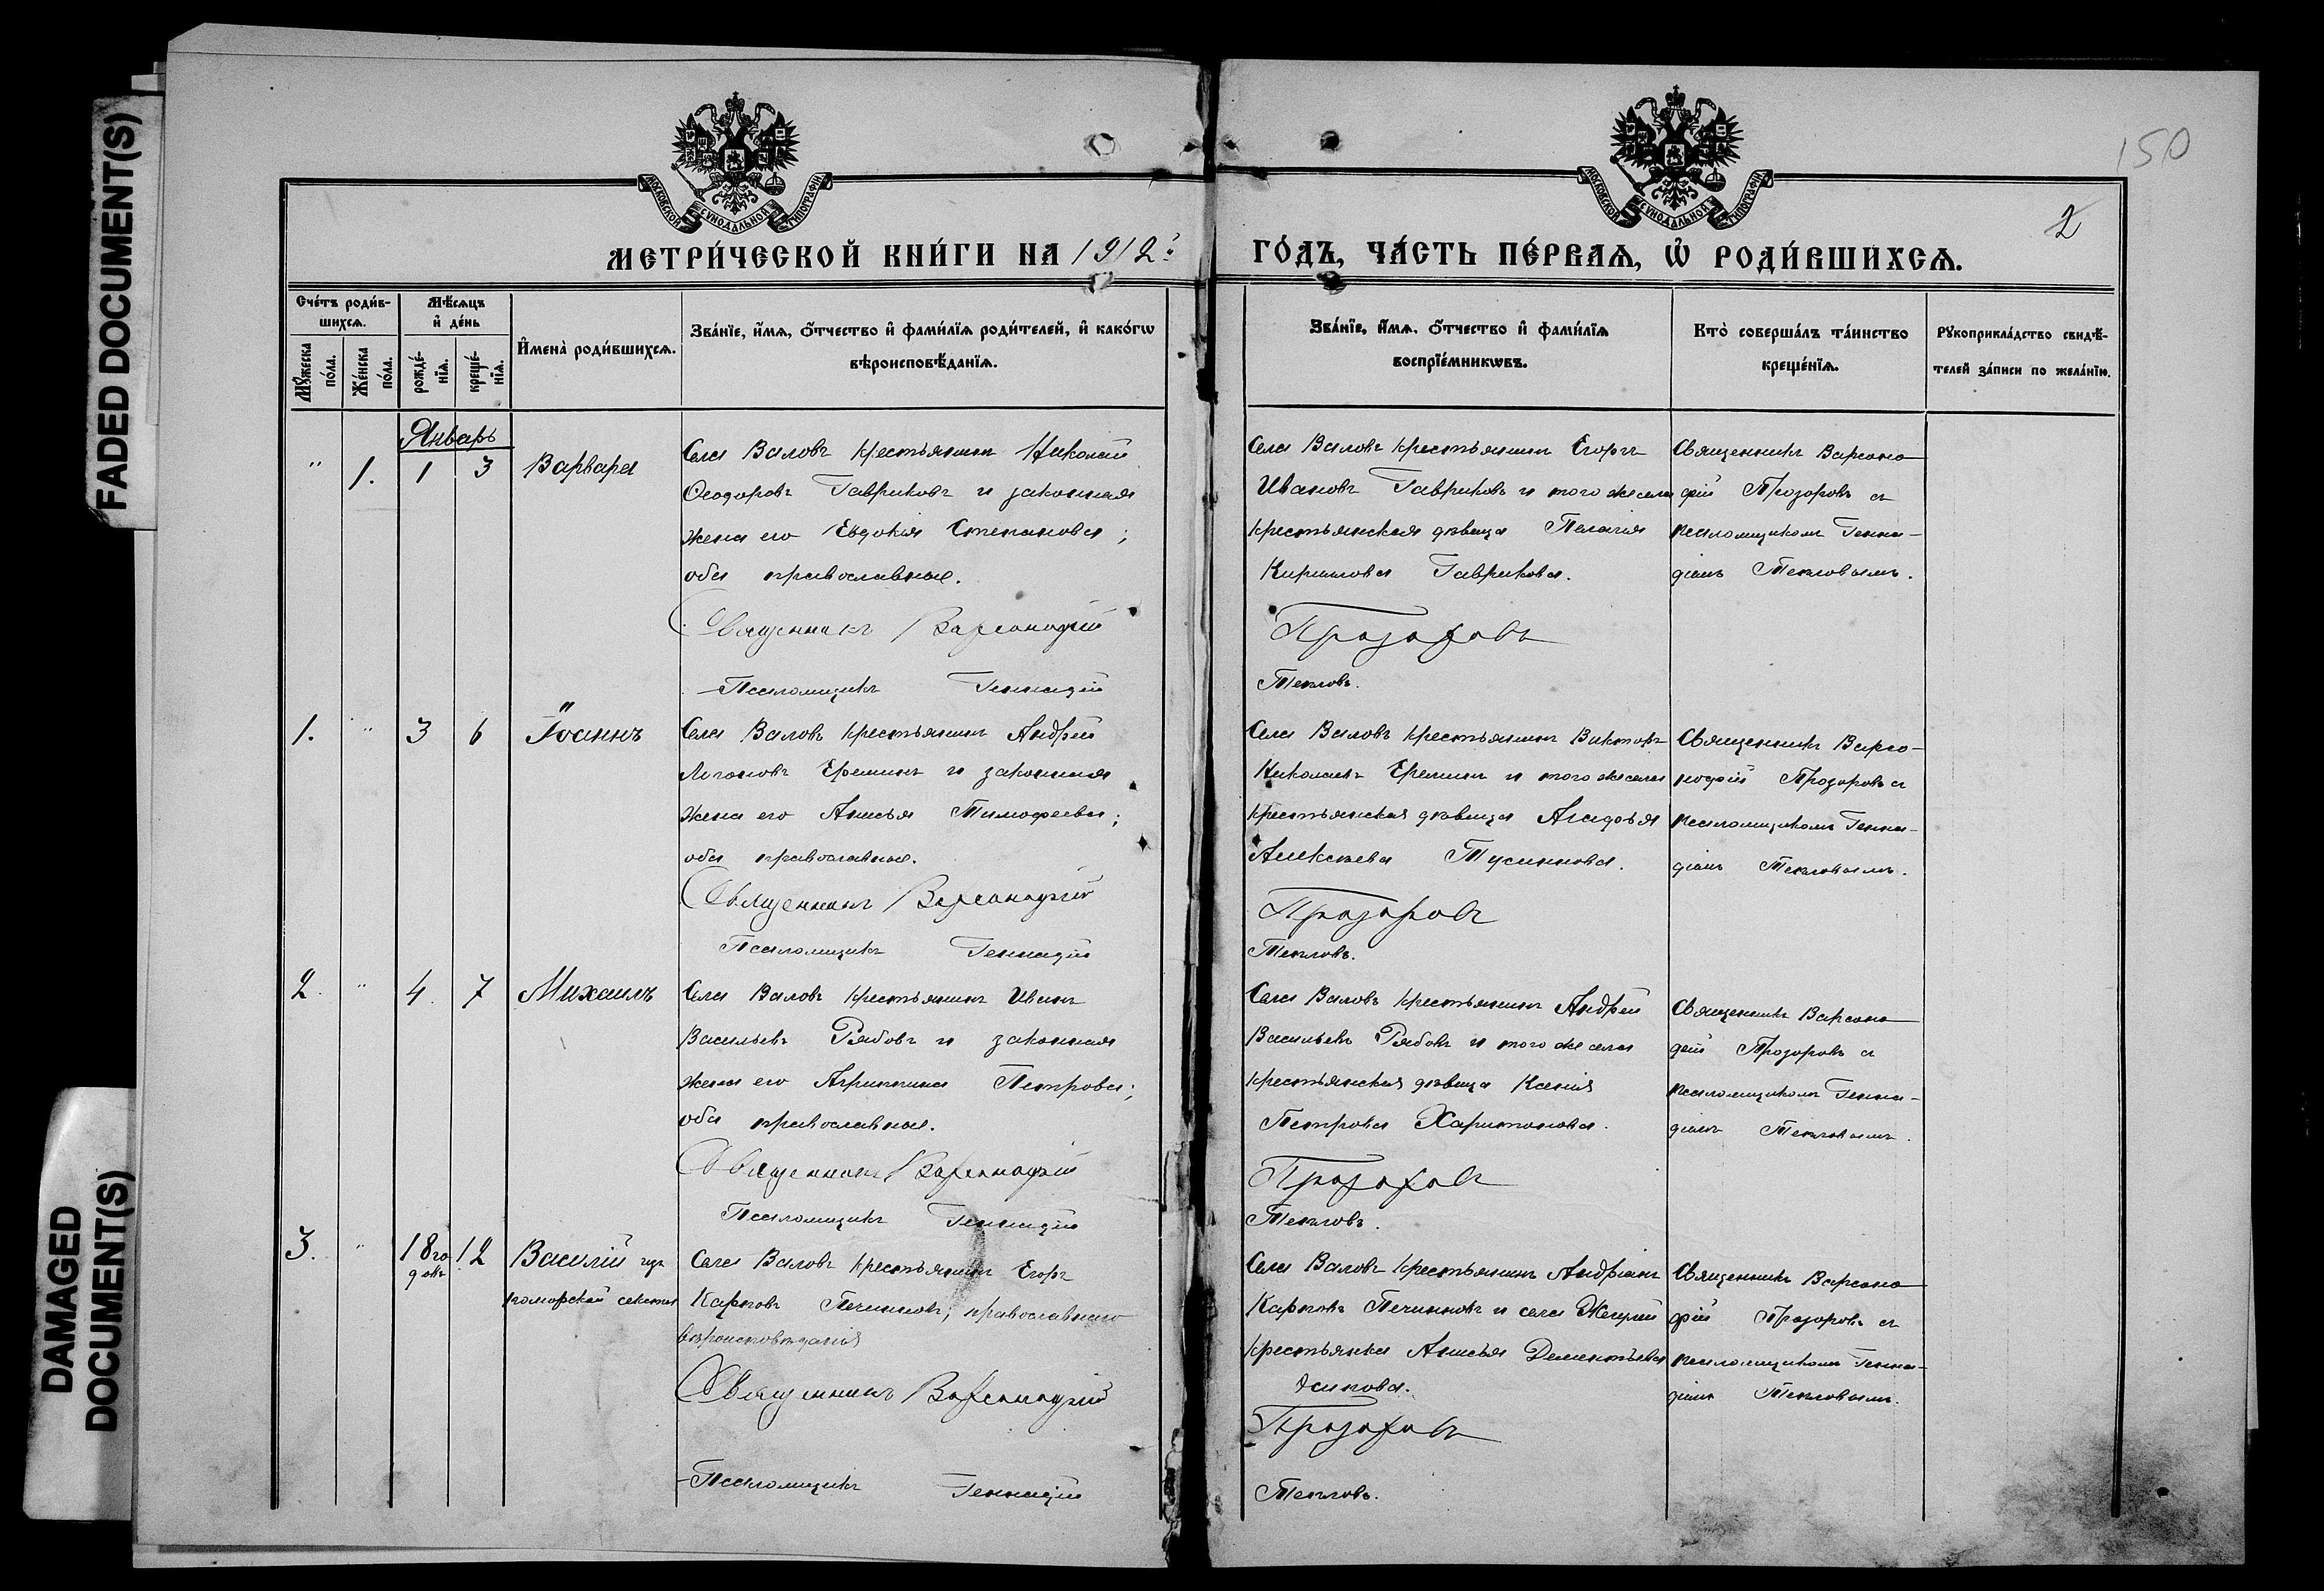 FADED DOCUMENT(S)
DAMAGED
DOCUMENT(S)
МОСКОВСКОЙ СѴНОДАЛЬНОЙ ТИПОГРАФІИ
МОСКОВСКОЙ СѴНОДАЛЬНОЙ ТИПОГРАФІИ
150
2
МЕТРИ́ЧЕСКОЙ КНИ́ГИ НА 1912:
ГО́ДЪ, ЧА́СТЬ ПЕ́РВАѦ, Ѡ҆ РОДИ́ВШИХСѦ.
Сче́тъ роди́в-
шихсѧ.
Мꙋ́жеска
по́ла.
Же́нска
по́ла.
Мѣ́сѧцъ
и҆ де́нь
рожде́-
нїѧ.
креще́-
нїѧ.
И҆мена̀ роди́вшихсѧ.
Зва́нїе, и҆́мѧ, ѻ҆́тчество и҆ фами́лїѧ роди́телей, и҆ како́гѡ
вѣроисповѣ́данїѧ.
Зва́нїе, и҆́мѧ, ѻ҆́тчество и҆ фами́лїѧ
воспрїе́мникѡвъ.
Кто̀ соверша́лъ та́инство
креще́нїѧ.
Рꙋкоприкла́дство свидѣ́-
телей за́писи по жела́нїю.
Январь
" 1. 1 3 Варвара
Села Валовъ крестьянинъ Николай
Ѳеодоровъ Гавриковъ и законная
жена его Евдокія Степанова;
оба православные.
Священникъ Варсонофій
Псаломщикъ Геннадій
Села Валовъ крестьянинъ Егоръ
Ивановъ Гавриковъ и того же села
крестьянская дѣвица Пелагія
Кириллова Гаврикова.
Прозоровъ
Тепловъ.
Священникъ Варсоно-
фій Прозоровъ съ
псаломщикомъ Генна-
діемъ Тепловымъ.
1. " 3 6 Іоаннъ
Села Валовъ крестьянинъ Андрей
Логоновъ Ереминъ и законная
жена его Анисья Тимофеева;
оба православные.
Священникъ Варсонофій
Псаломщикъ Геннадій
Села Валовъ крестьянинъ Викторъ
Николаевъ Ереминъ и того же села
крестьянская дѣвица Агафья
Алексѣева
Прозоровъ
Тепловъ.
Священникъ Варсо-
нофій Прозоровъ съ
псаломщикомъ Генна-
діемъ Тепловымъ.
2. " 4. 7 Михаилъ
Села Валовъ крестьянинъ Иванъ
Васильевъ Рябовъ и законная
жена его Агриппина Петрова;
оба православные.
Священникъ Варсонофій
Псаломщикъ Геннадій
Села Валовъ крестьянинъ Андрей
Васильевъ Рябовъ и того же села
крестьянская дѣвица Ксенія
Петрова Харитонова.
Прозоровъ
Тепловъ.
Священникъ Варсоно-
фій Прозоровъ съ
псаломщикомъ Генна-
діемъ Тепловымъ.
3. " 18го 12 Василій изъ
поморской секты
Села Валовъ крестьянинъ Егоръ
Карповъ Печинновъ; православнаго
вѣроисповѣданія
Священникъ Варсонофій
Псаломщикъ Геннадій
Села Валовъ крестьянинъ Андріанъ
Карповъ Печинновъ и села Жегулей
крестьянка Анисья Дементьева
Осипова.
Прозоровъ
Тепловъ.
Священникъ Варсоно-
фій Прозоровъ съ
псаломщикомъ Генна-
діемъ Тепловымъ.